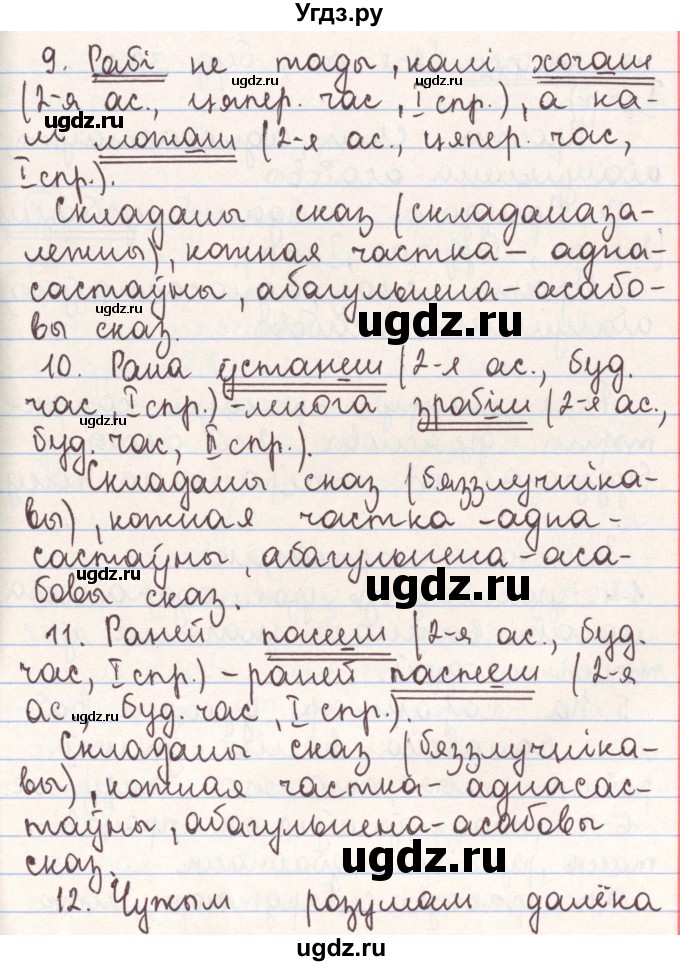 Угдз.ру
9. Рабі не тады, калі хочаш
(2-я ас., цяпер. час, I спр.), а ка-
лі можаш (2-я ас., цяпер. час,
I спр.).
Складаны сказ (складаназа-
лежны), кожная частка - адна-
састаўны, абагульнена-асабо-
вы сказ.
10. Рана ўстанеш (2-я ас., буд.
час, I спр.) - многа зробіш (2-я ас.,
буд. час, II спр.).
Складаны сказ (бяззлучніка-
вы), кожная частка - адна-
састаўны, абагульнена-аса-
бовы сказ.
11. Раней пасееш (2-я ас., буд.
час, I спр.) - раней паспееш (2-я
ас., буд. час, I спр.)
Складаны сказ (бяззлучніка-
вы), кожная частка - аднасас-
таўны, абагульнена-асабовы
сказ.
12. Чужым розумам далёка
ugdz.ru
ugdz.ru
ugdz.ru
ugdz.ru
ugdz.ru
ugdz.ru
ugdz.ru
ugdz.ru
ugdz.ru
ugdz.ru
ugdz.ru
ugdz.ru
ugdz.ru